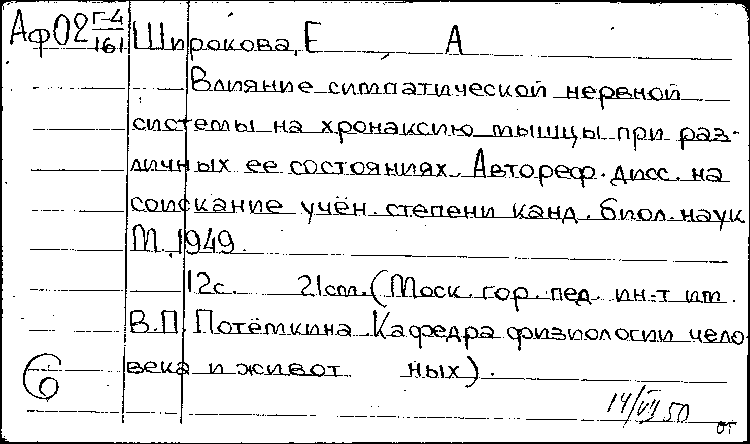 Аф02 Г-4/161 Широкова, Е А
Влияние симпатической нервной
системы на хронаксию мышцы при раз-
личных ее состояниях. Автореф. дисс. на
соискание учён. степени канд. биол. наук
М., 1949.
12с. 21cm. (Моск. гор. пед. ин-т им.
В.П. Потёмкина. Кафедра физиологии чело-
века и живот ных).
6
14/VII 50
от